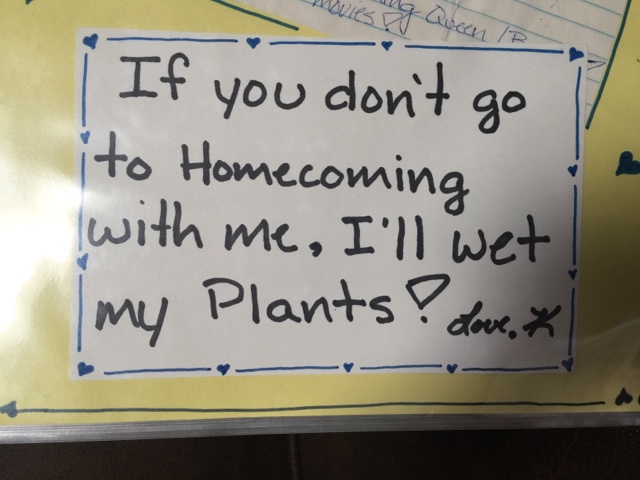 movies! King Queen
If you don't go
to Homecoming
with me, I'll wet
my Plants!
Love, K